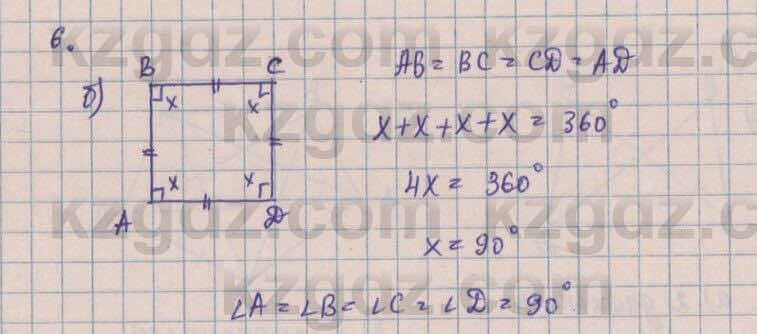 6.
б)
B C
x x
x x
A D
AB = BC = CD = AD
x + x + x + x = 360°
4x = 360°
x = 90°
∠A = ∠B = ∠C = ∠D = 90°.
kzgdz.com kzgdz.com
kzgdz.com
kzgdz.com kzgdz.com
kzgdz.com